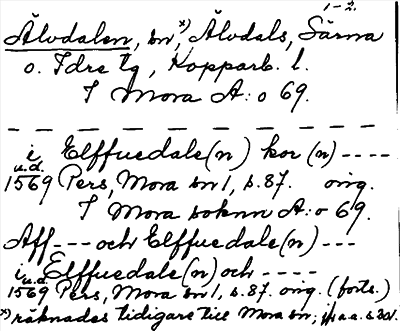 1-2.
Älvdalen, sn,*) Älvdals, Särna
o. Idre tg, Kopparb. l.
I Mora A:o 69.
i Elffuedale(n) kor(n) ----
u.d.
1569 Pers, Mora sn 1, s. 87. orig.
I Mora soknn A:o 69.
Aff --- och Elffuedale(n) ---
i Elffuedale(n) och ----
u.d.
1569 Pers, Mora sn 1, s. 87. orig. (forts.)
*) räknades tidigare till Mora sn; jfr a.a. s 301.